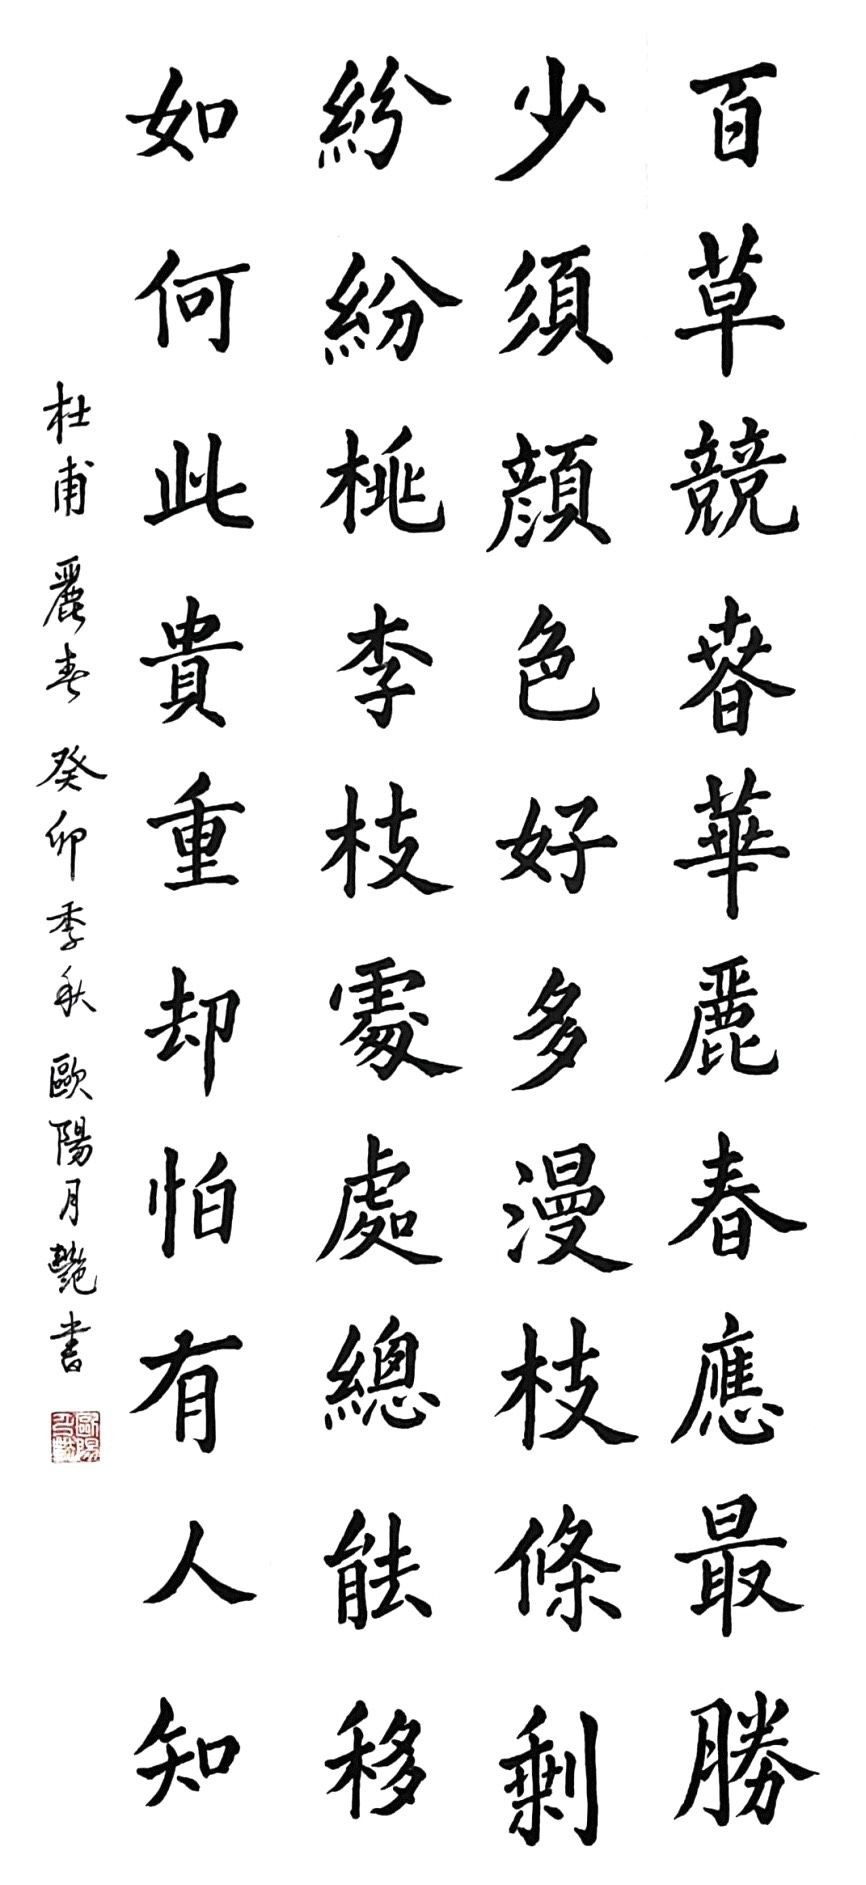 百草競春華麗春應最勝
少須顏色好多漫枝條剩
紛紛桃李枝處處總能移
如何此貴重却怕有人知
杜甫 麗春 癸卯季秋 歐陽月艷書